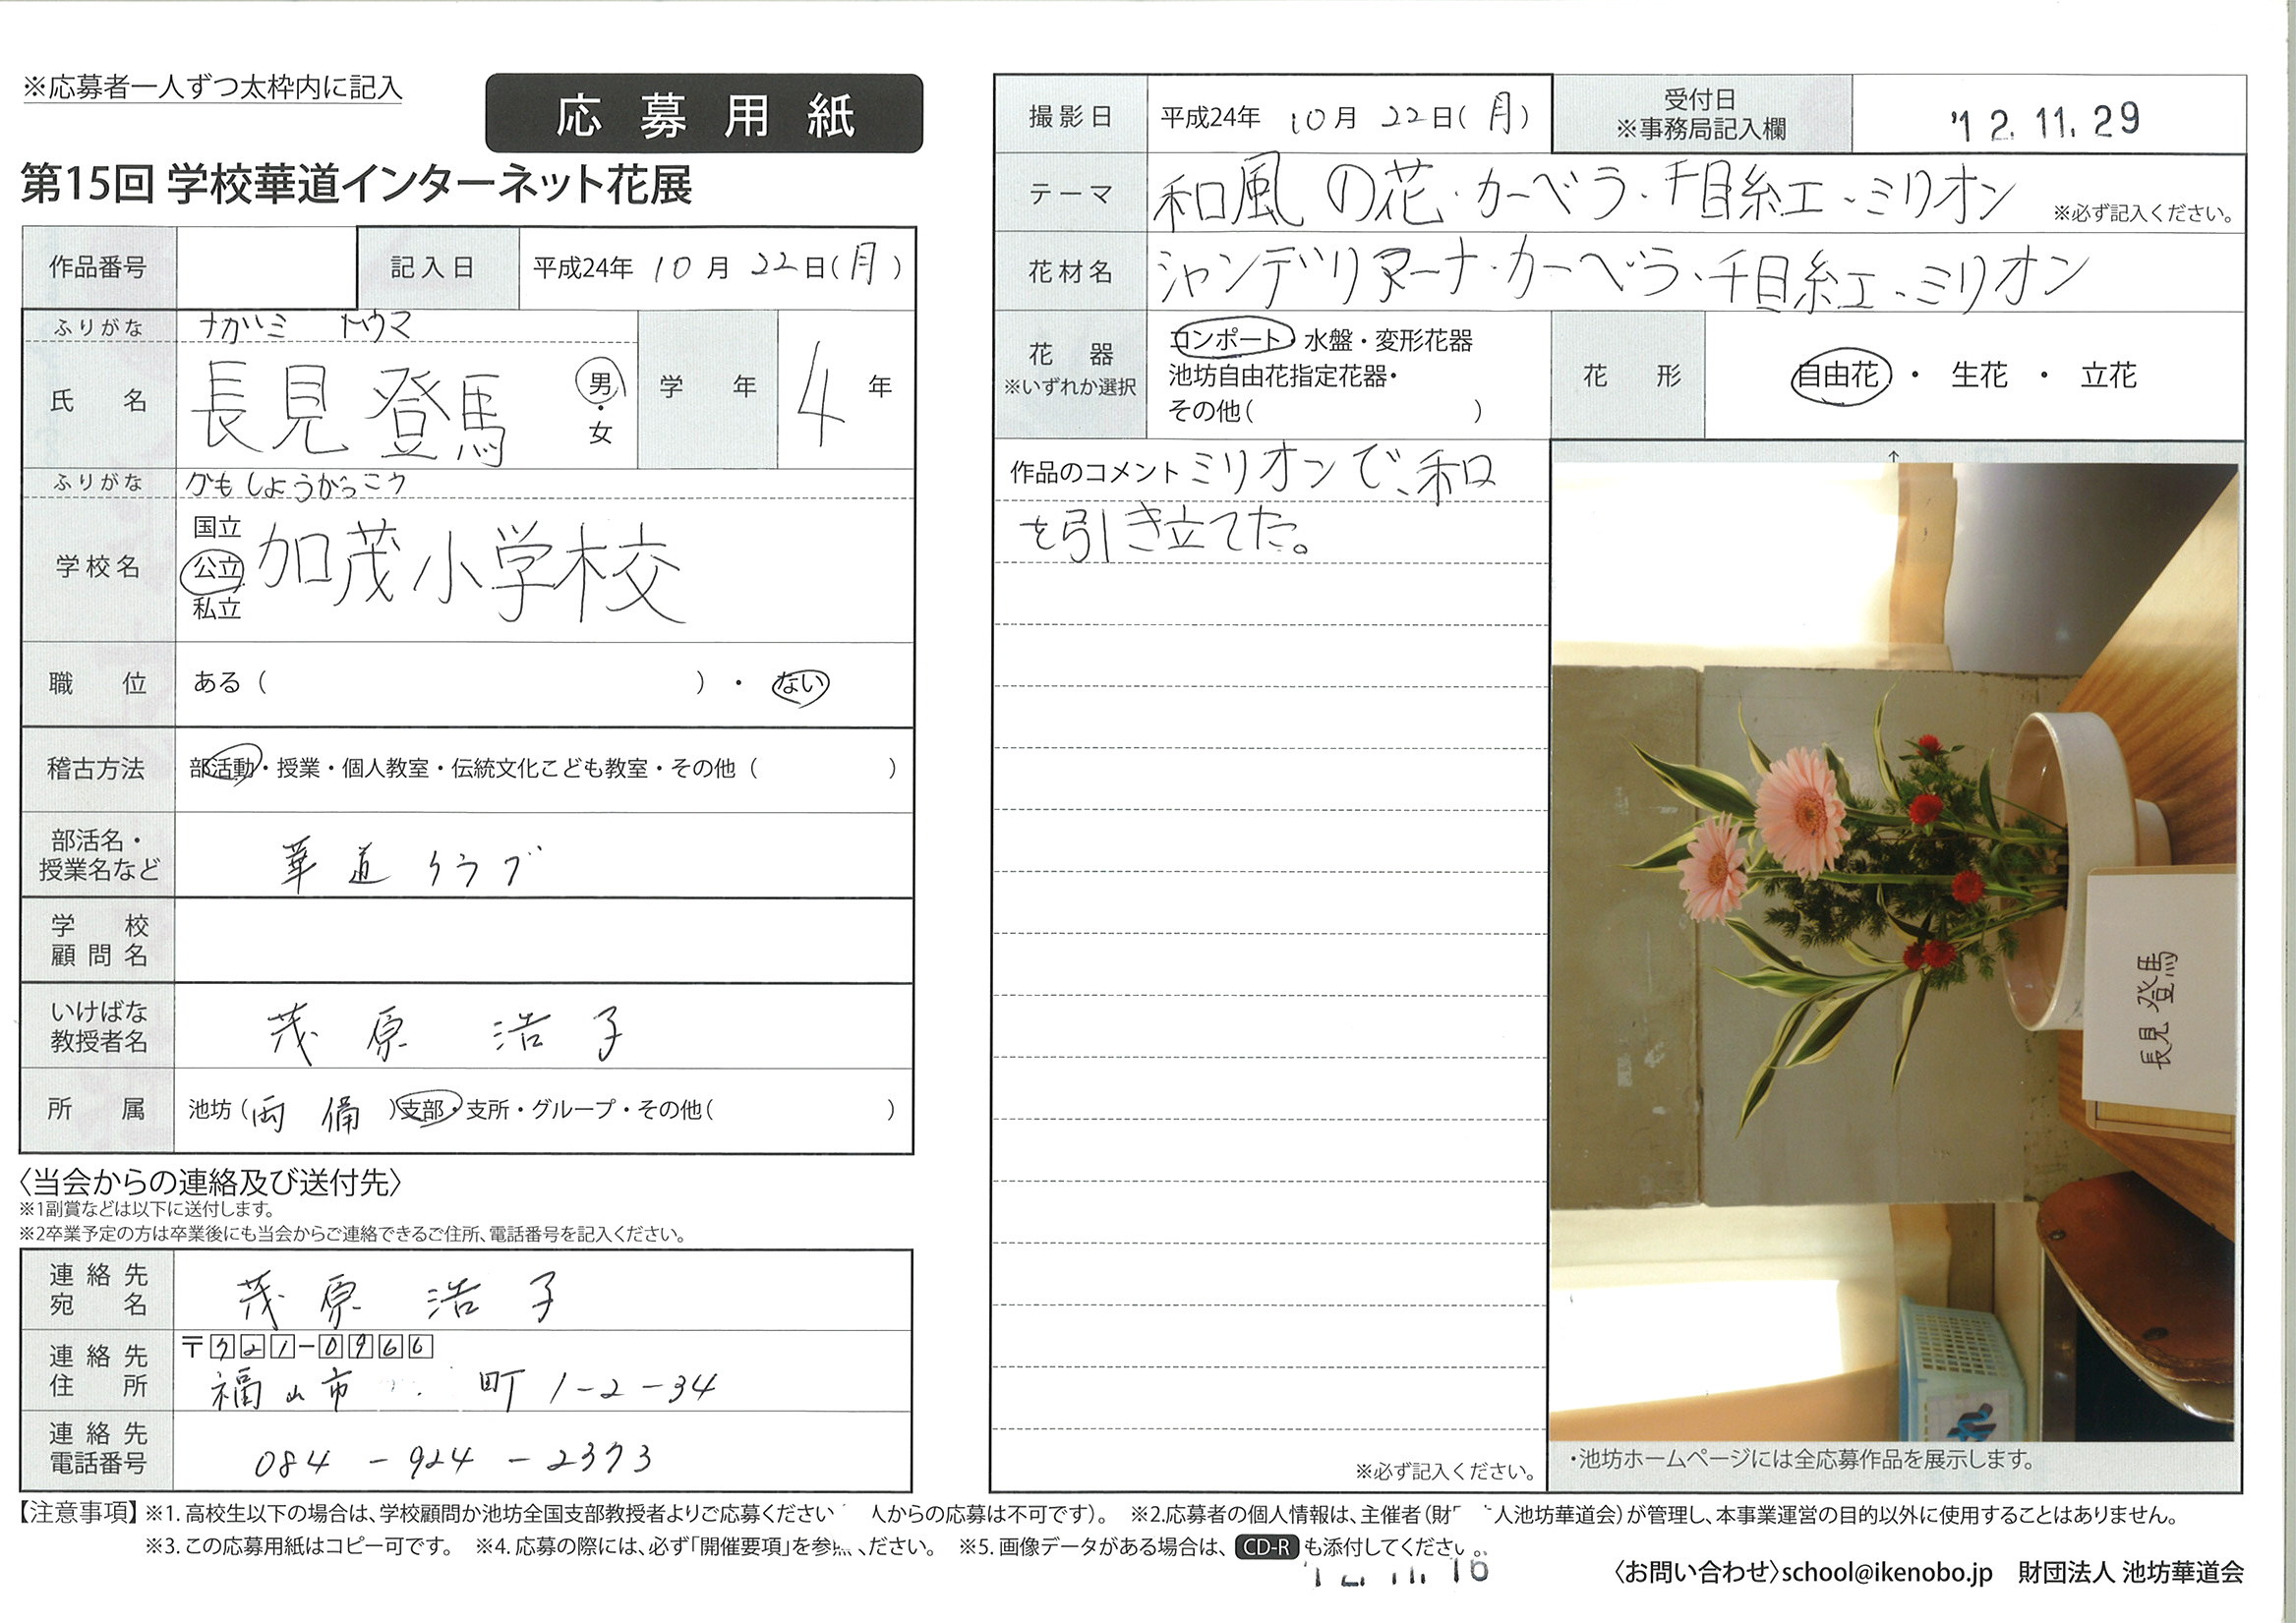 ※応募者一人ずつ太枠内に記入
応募用紙
第15回 学校華道インターネット花展
作品番号
記入日 平成24年 10月 22日(月)
ふりがな ナガミ トウマ
氏名 長見 登馬 男・女
学年 4年
ふりがな かもしょうがっこう
学校名 国立 公立 私立 加茂小学校
職位 ある( )・ない
稽古方法 部活動・授業・個人教室・伝統文化こども教室・その他( )
部活名・授業名など 華道クラブ
学校顧問名
いけばな教授者名 茂原 浩子
所属 池坊(両備)支部・支所・グループ・その他( )
〈当会からの連絡及び送付先〉
※1副賞などは以下に送付します。
※2卒業予定の方は卒業後にも当会からご連絡できるご住所、電話番号を記入ください。
連絡先宛名 茂原 浩子
連絡先住所 〒721-0966
福山市 町1-2-34
連絡先電話番号 084-924-2373
撮影日 平成24年 10月 22日(月)
受付日 ※事務局記入欄 '12.11.29
テーマ 和風の花・カーベラ・千日紅・ミリオン ※必ず記入ください。
花材名 シャンデリアーナ・カーベラ・千日紅・ミリオン
花器 ※いずれか選択 コンポート・水盤・変形花器
池坊自由花指定花器・
その他( )
花形 自由花・生花・立花
作品のコメント ミリオンで、和
を引き立てた。
※必ず記入ください。
↑
長見 登馬
・池坊ホームページには全応募作品を展示します。
【注意事項】※1.高校生以下の場合は、学校顧問か池坊全国支部教授者よりご応募ください 人からの応募は不可です)。 ※2.応募者の個人情報は、主催者(財 人池坊華道会)が管理し、本事業運営の目的以外に使用することはありません。
※3.この応募用紙はコピー可です。 ※4.応募の際には、必ず「開催要項」を参照ください。 ※5.画像データがある場合は、CD-Rも添付してください。
〈お問い合わせ〉school@ikenobo.jp 財団法人 池坊華道会